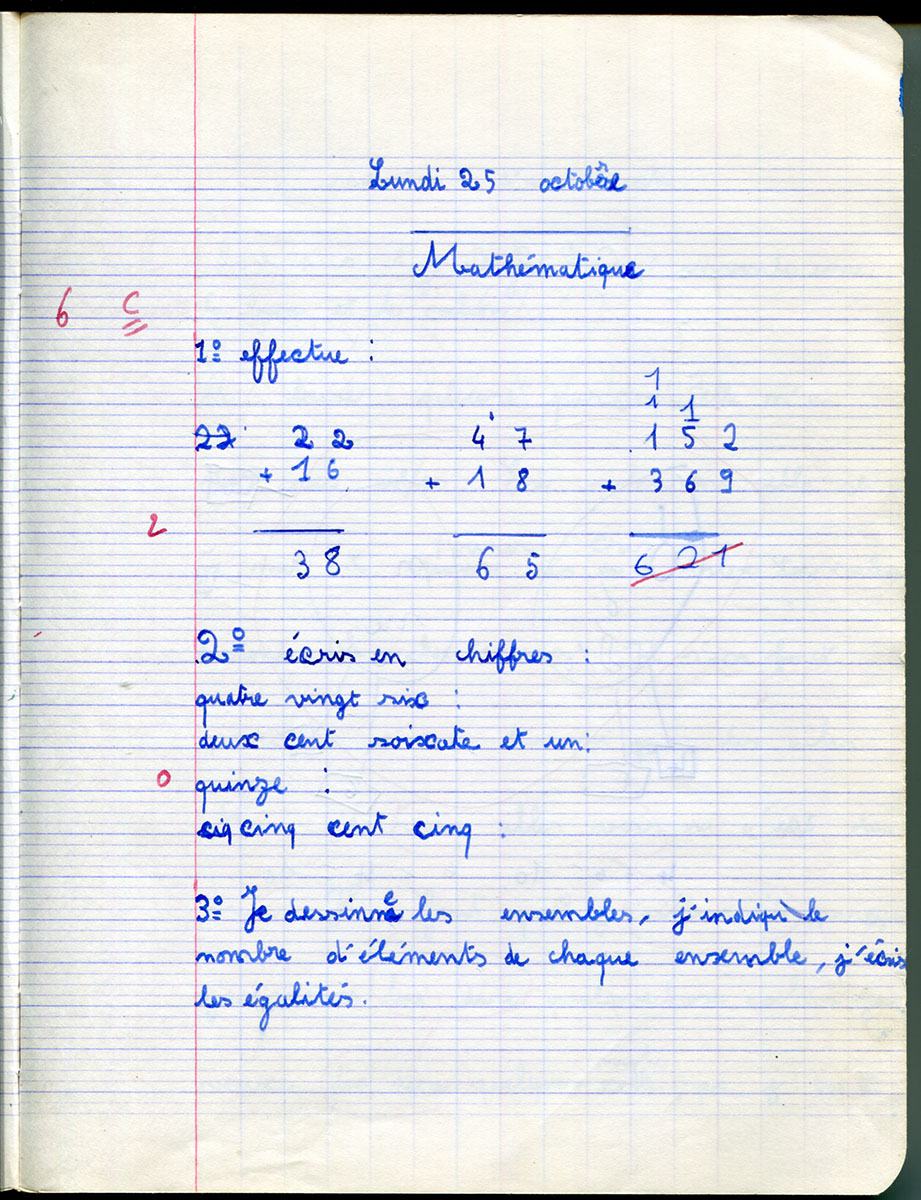 Lundi 25 octobre
Mathématique
6 C
1° effectue :
1
1 1
22 2 2 4 7 1 5 2
+ 1 6 + 1 8 + 3 6 9
2
3 8 6 5 6 2 1
2° écris en chiffres :
quatre vingt six :
deux cent soixate et un :
0 quinze :
ciq cinq cent cinq :
3° Je dessinne les ensembles, j'indiqu le
nombre d'éléments de chaque ensemble, j'écris
les égalités.